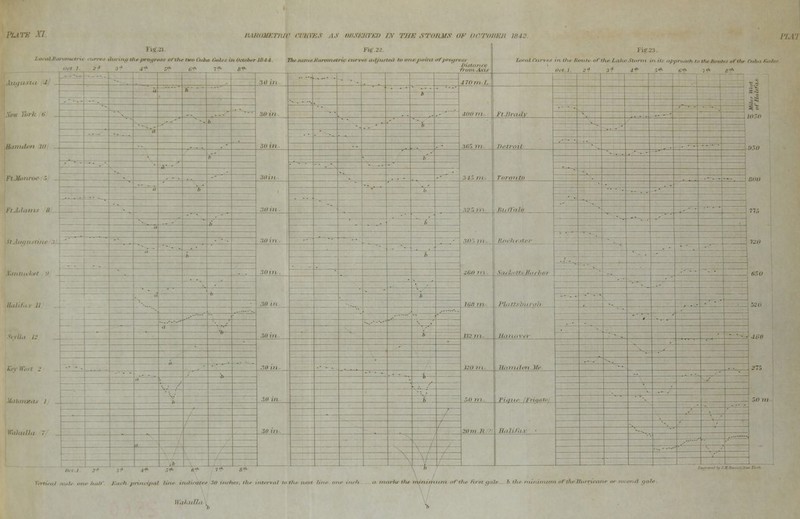 PLATE XI.
BAROMETRIC CURVES AS OBSERVED IN THE STORMS OF OCTOBER 1842.
PLAT
Fig. 21.
Fig. 22.
Fig. 23.
Local Barometric curves during the progress of the two Cuba Gales in October 1844.
The same Barometric curves adjusted to one point of progress
Local Curves in the Route of the Lake Storm in its approach to the Route of the Cuba Gales
Distance from Axis
Oct. 1 2d 3d 4th 5th 6th 7th 8th
Oct. 1 2d 3d 4th 5th 6th 7th 8th
Miles West of Halifax
Augusta 4 30 in. 470 m. L.
New York 6 30 in. 400 m. Ft Brady 1050
Hamden 10 30 in. 365 m. Detroit 950
Ft Monroe 5 30 in. 345 m. Toronto 800
Ft Adams 8 30 in. 325 m. Buffalo 775
St Augustine 3 30 in. 305 m. Rochester 720
Nantucket 9 30 in. 260 m. Sacketts Harbor 650
Halifax 11 30 in. 160 m. Plattsburgh 520
Sylla 12 30 in. 152 m. Hanover 460
Key West 2 30 in. 120 m. Hamden Me. 275
Matanzas 1 30 in. 50 m. Pique (Frigate) 50 m.
Wakulla 7 30 in. 20 m. R. Halifax
a
b
Oct. 1 2d 3d 4th 5th 6th 7th 8th
Vertical scale one half. Each principal line indicates 30 inches, the interval to the next line one inch. a marks the minimum of the first gale. b the minimum of the Hurricane or second gale.
Wakulla